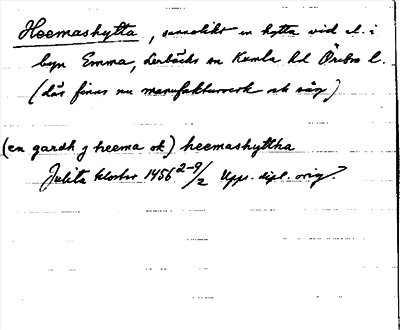 Heemashytta, sannolikt en hytta vid el. i
byn Emma, Lerbäcks sn Kumla hd Örebro l.
(där finns nu manufakturverk och såg)
(en gardh j heema ok) heemashyttha
Julita kloster 1456 2-9/2 Upps. dipl. orig